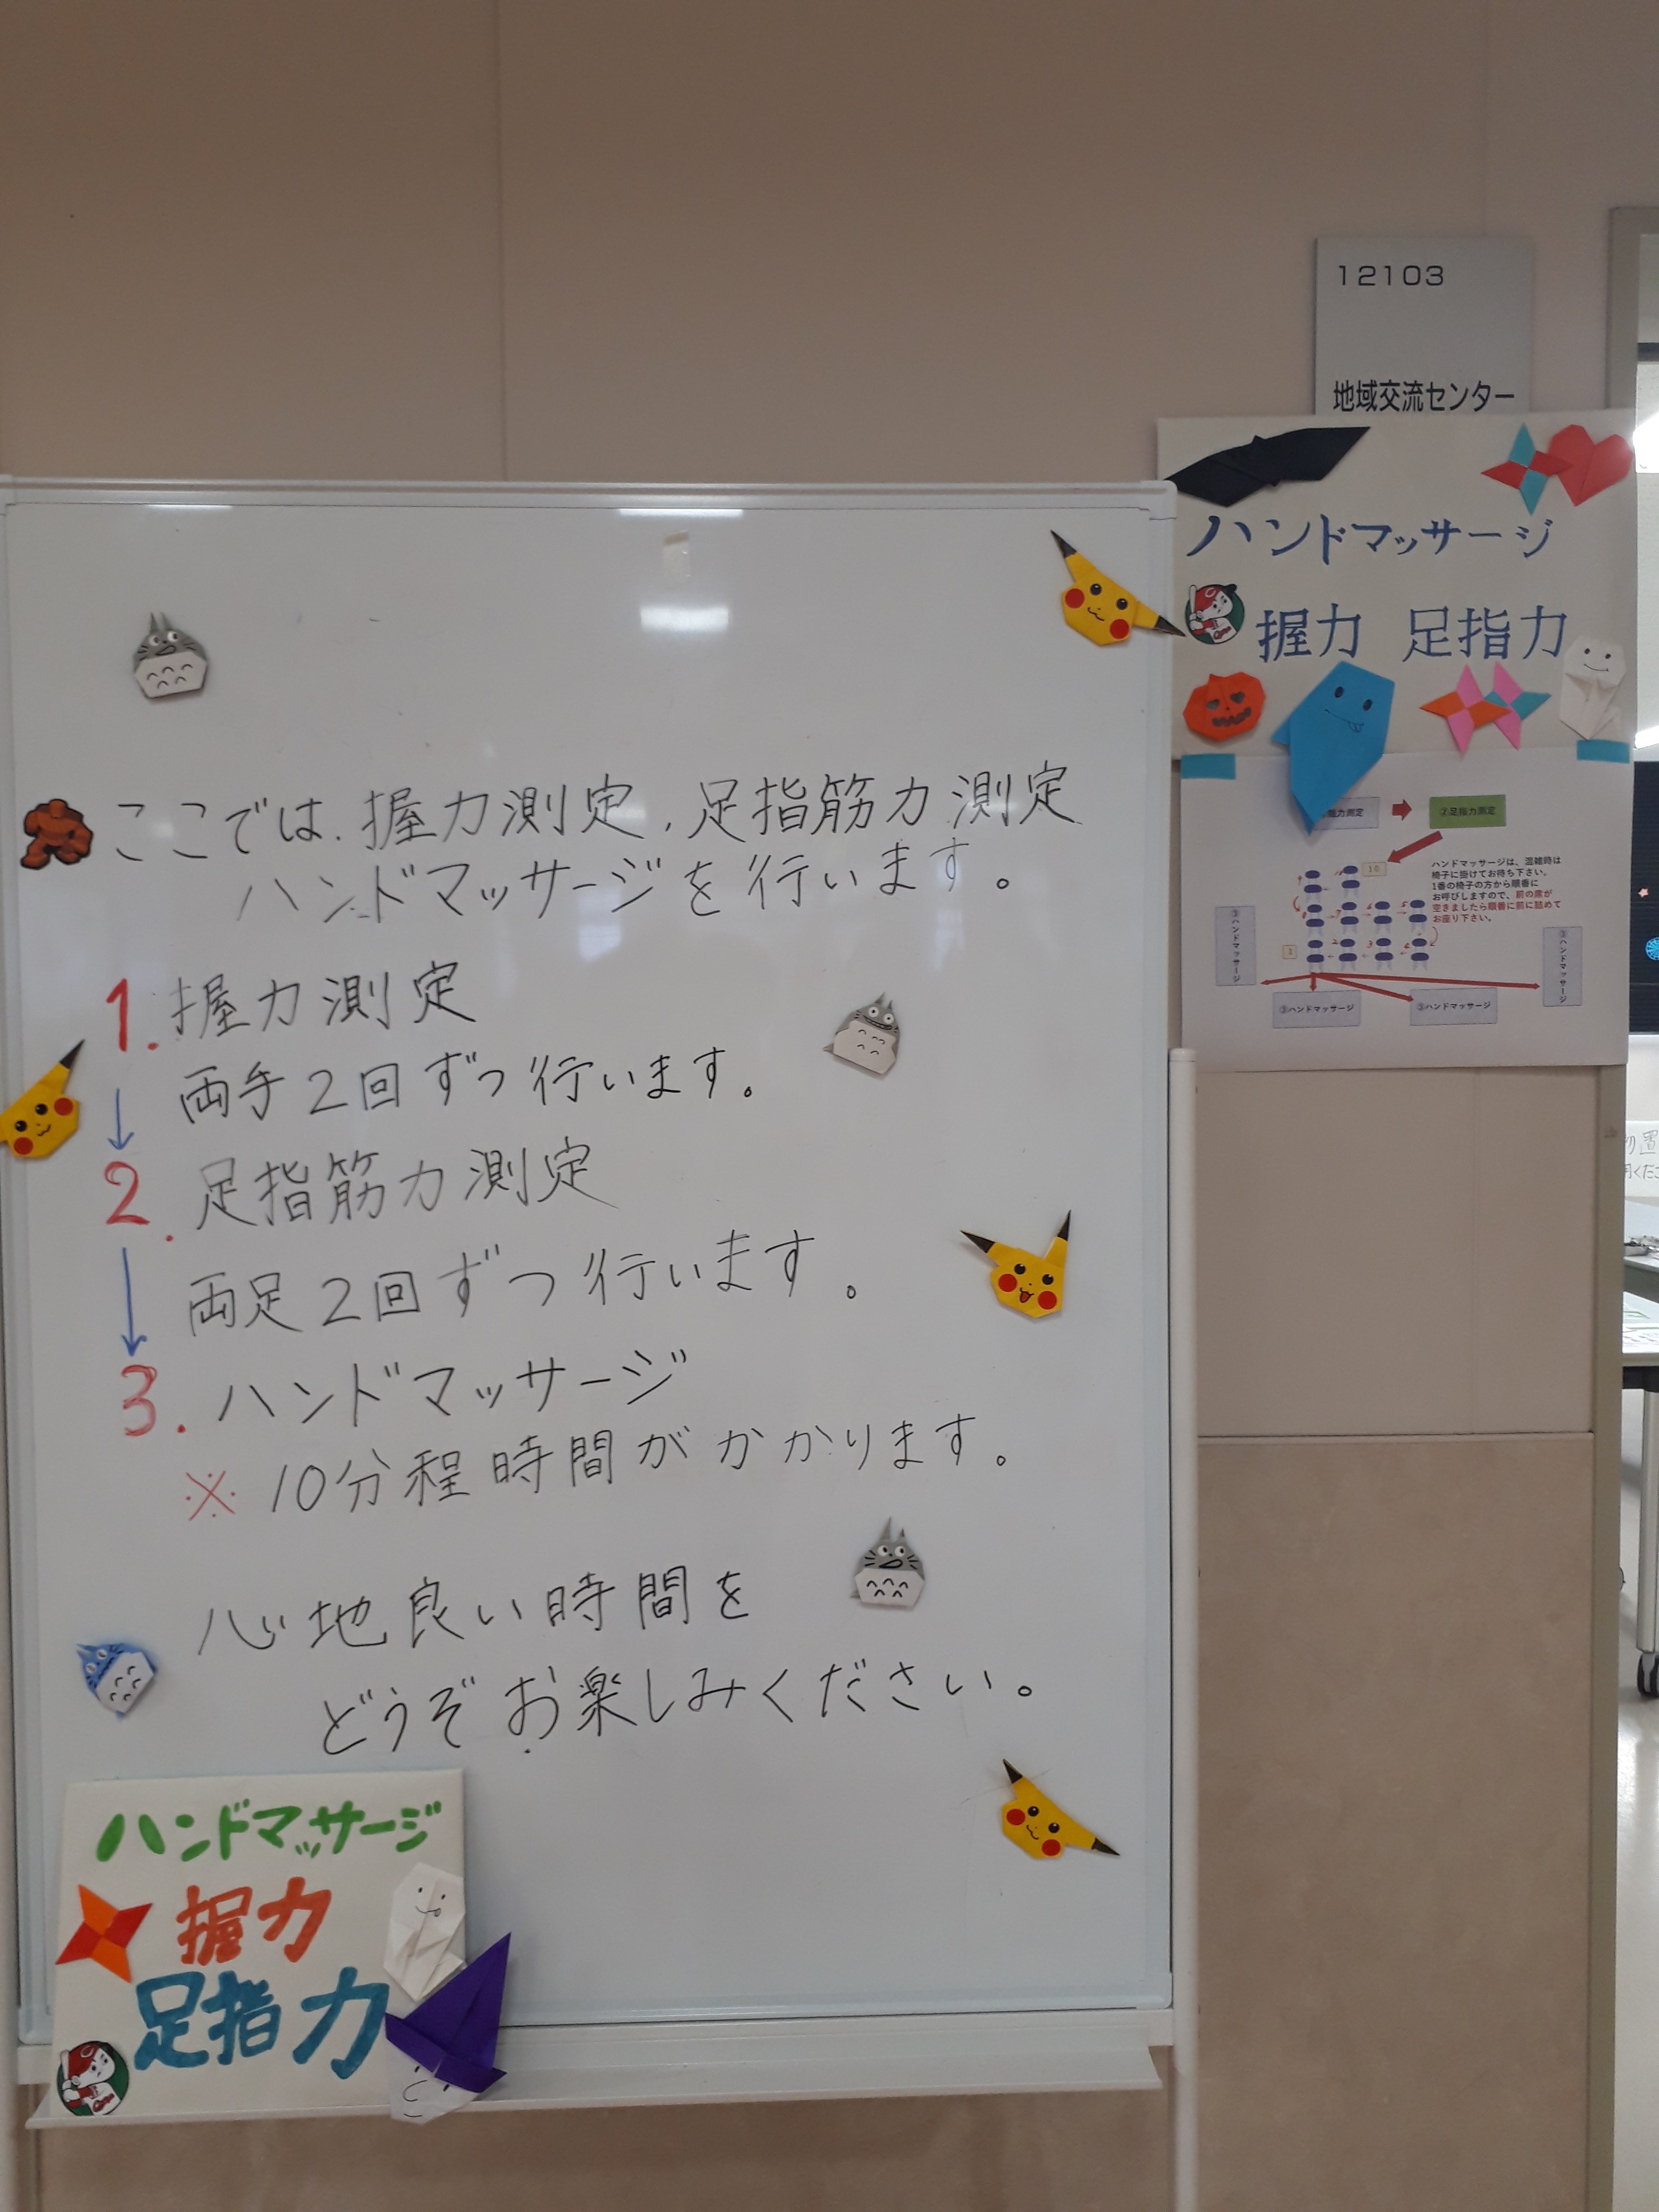 12103
地域交流センター
ハンドマッサージ
握力 足指力
ここでは、握力測定、足指筋力測定
ハンドマッサージを行います。
1. 握力測定
両手2回ずつ行います。
2. 足指筋力測定
両足2回ずつ行います。
3. ハンドマッサージ
※ 10分程時間がかかります。
心地良い時間を
どうぞお楽しみください。
ハンドマッサージ
握力
足指力
②足指力測定
ハンドマッサージは、混雑時は
椅子に掛けてお待ち下さい。
1番の椅子の方から順番に
お呼びしますので、前の席が
空きましたら順番に前に詰めて
お座り下さい。
10
1
③ハンドマッサージ
③ハンドマッサージ
③ハンドマッサージ
③ハンドマッサージ